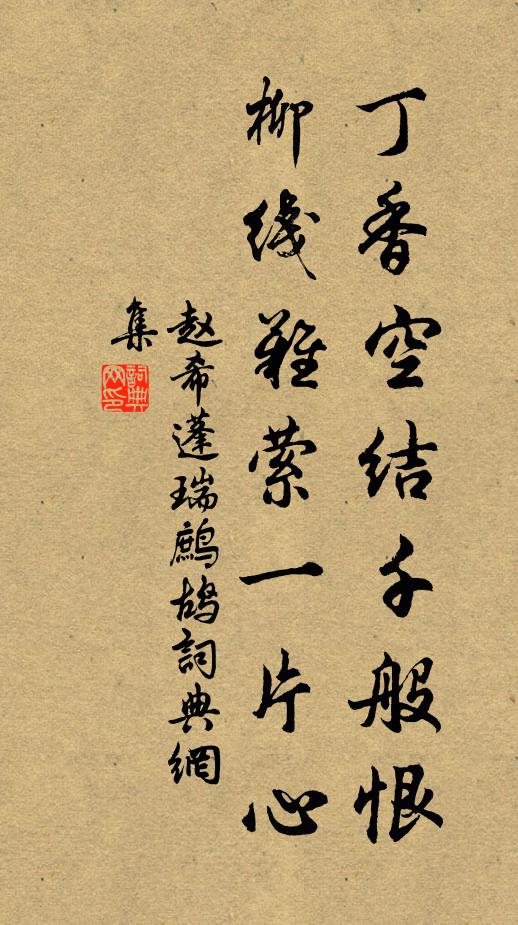 丁香空结千般恨
柳线难萦一片心
赵希蓬瑞鹧鸪詞典網
集
詞典
网印